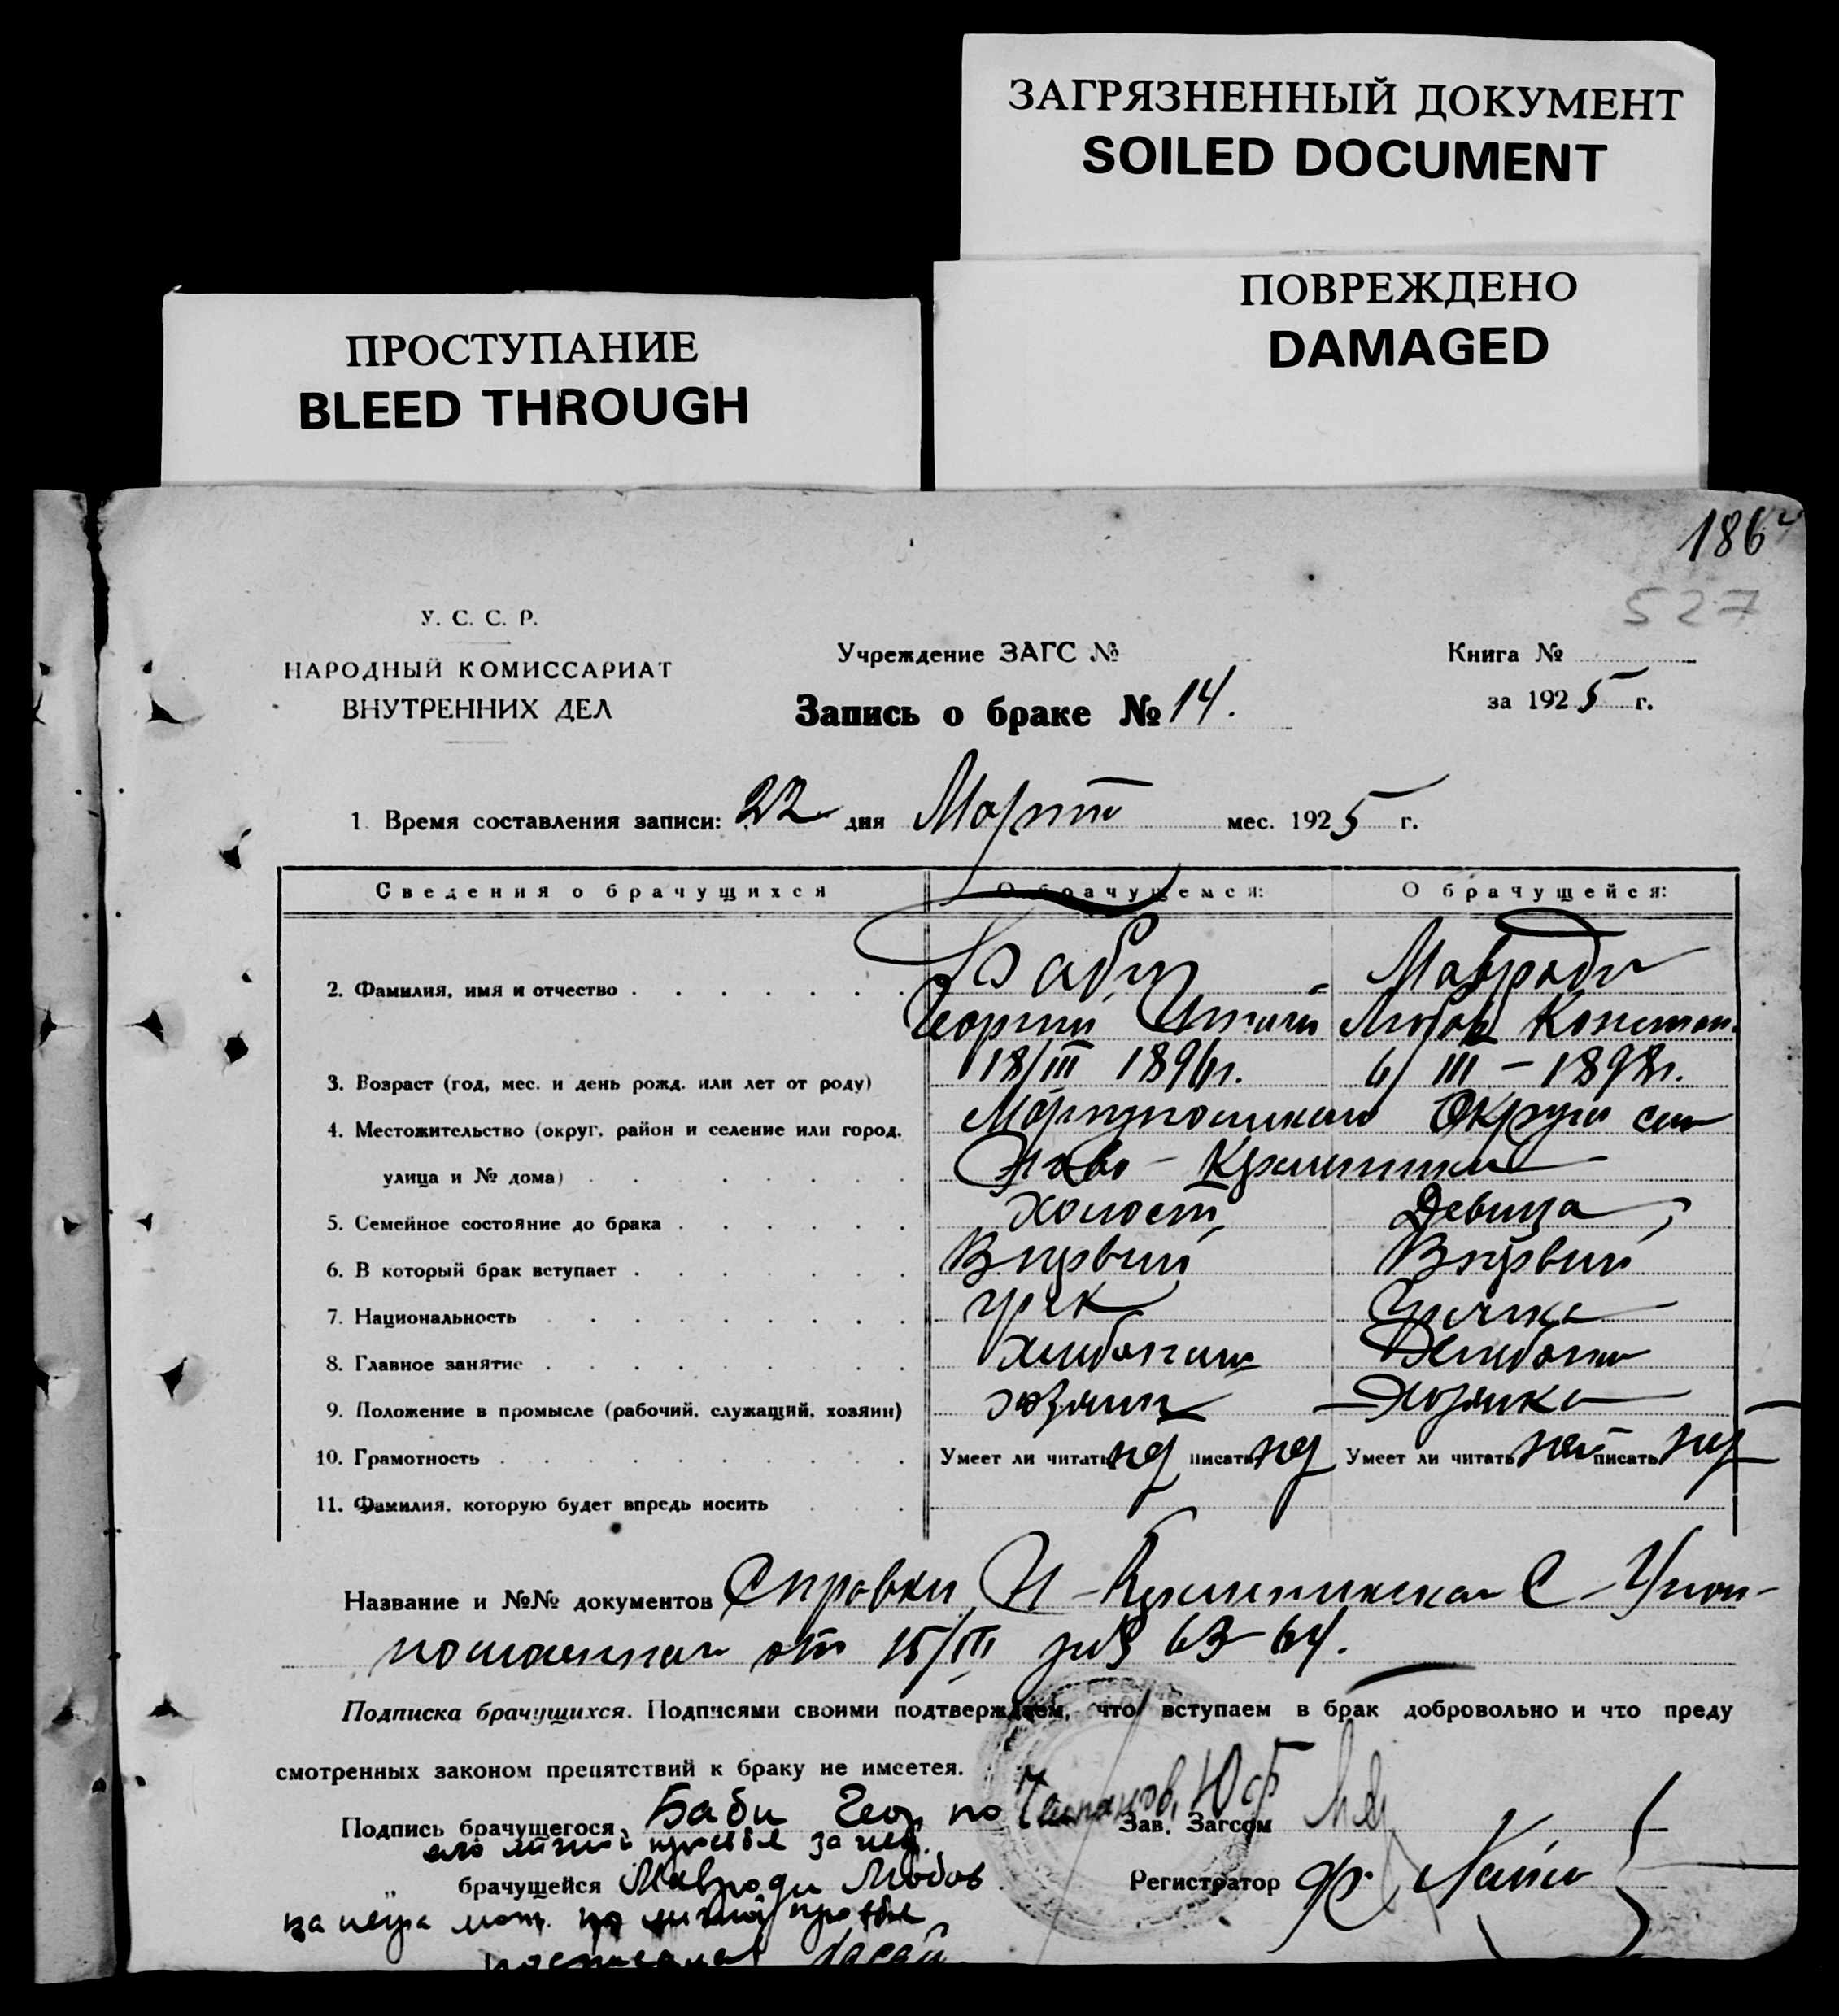 ЗАГРЯЗНЕННЫЙ ДОКУМЕНТ
SOILED DOCUMENT
ПОВРЕЖДЕНО
DAMAGED
ПРОСТУПАНИЕ
BLEED THROUGH
186
527
У. С. С. Р.
НАРОДНЫЙ КОМИССАРИАТ
ВНУТРЕННИХ ДЕЛ
Учреждение ЗАГС №
Запись о браке № 14.
Книга №
за 1925 г.
1. Время составления записи: 22 дня Марта мес. 1925 г.
Сведения о брачущихся О брачущемся: О брачущейся:
2. Фамилия, имя и отчество Баби Мавроди
Георгий Любов Констан.
3. Возраст (год, мес. и день рожд. или лет от роду) 18/III 1896г. 6/III – 1898г.
4. Местожительство (округ, район и селение или город, Мариупольского Округа село
улица и № дома) Ново-
5. Семейное состояние до брака Холост Девица
6. В который брак вступает Впервый Впервый
7. Национальность грек Гречка
8. Главное занятие
9. Положение в промысле (рабочий, служащий, хозяин) хозяин Хозяйка
10. Грамотность Умеет ли читать нет писать нет Умеет ли читать нет писать нет
11. Фамилия, которую будет впредь носить
Название и №№ документов Справки Н-
от 15/III за № 63-64.
Подписка брачущихся. Подписями своими подтверждаем, что вступаем в брак добровольно и что преду
смотренных законом препятствий к браку не имеется.
Подпись брачущегося Баби Геор по Зав. Загсом
его личной просьбе за нег.
„ брачущейся Мавроди Любов Регистратор
по личной просьбе